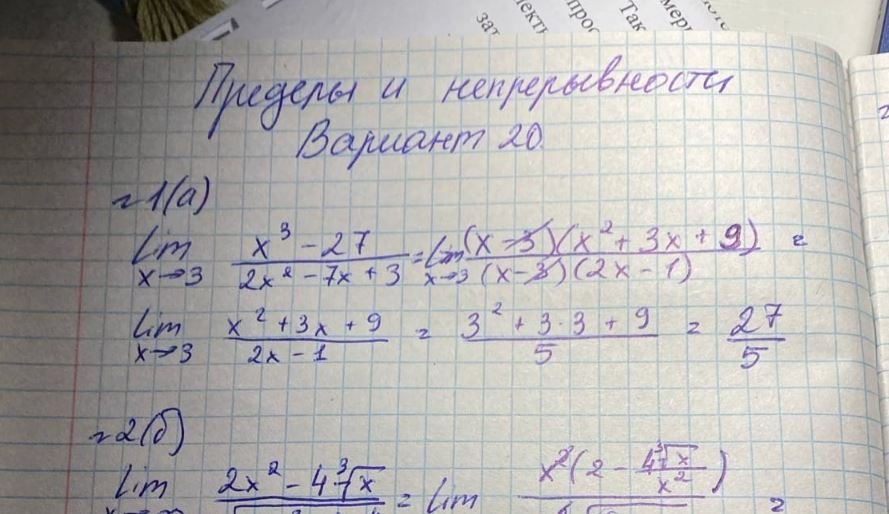 Так
Пределы и непрерывности
Вариант 20.
№1(а)
lim x→3 (x³ - 27)/(2x² - 7x + 3) = lim x→3 ((x - 3)(x² + 3x + 9))/((x - 3)(2x - 1)) =
lim x→3 (x² + 3x + 9)/(2x - 1) = (3² + 3·3 + 9)/5 = 27/5
№2(б)
lim (2x² - 4∛x) = lim x²(2 - 4∛x/x²) =